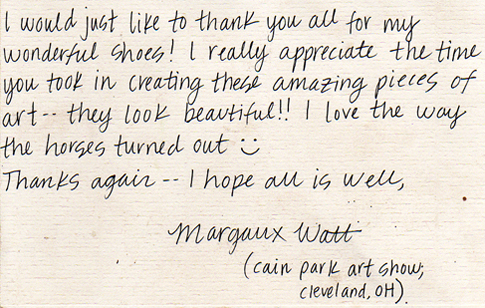 I would just like to thank you all for my
wonderful shoes! I really appreciate the time
you took in creating these amazing pieces of
art-- they look beautiful!! I love the way
the horses turned out :)
Thanks again -- I hope all is well,
Margaux Watt
(cain park art show,
cleveland, OH)